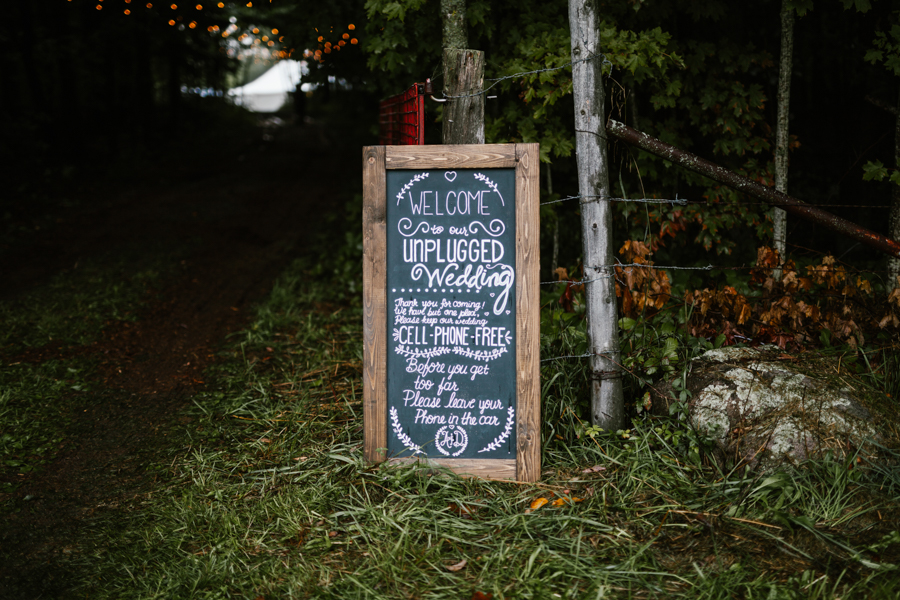 WELCOME
to our
UNPLUGGED
Wedding
Thank you for coming!
We have but one plea,
Please keep our wedding
CELL-PHONE-FREE
Before you get
too far
Please leave your
Phone in the car
H+D